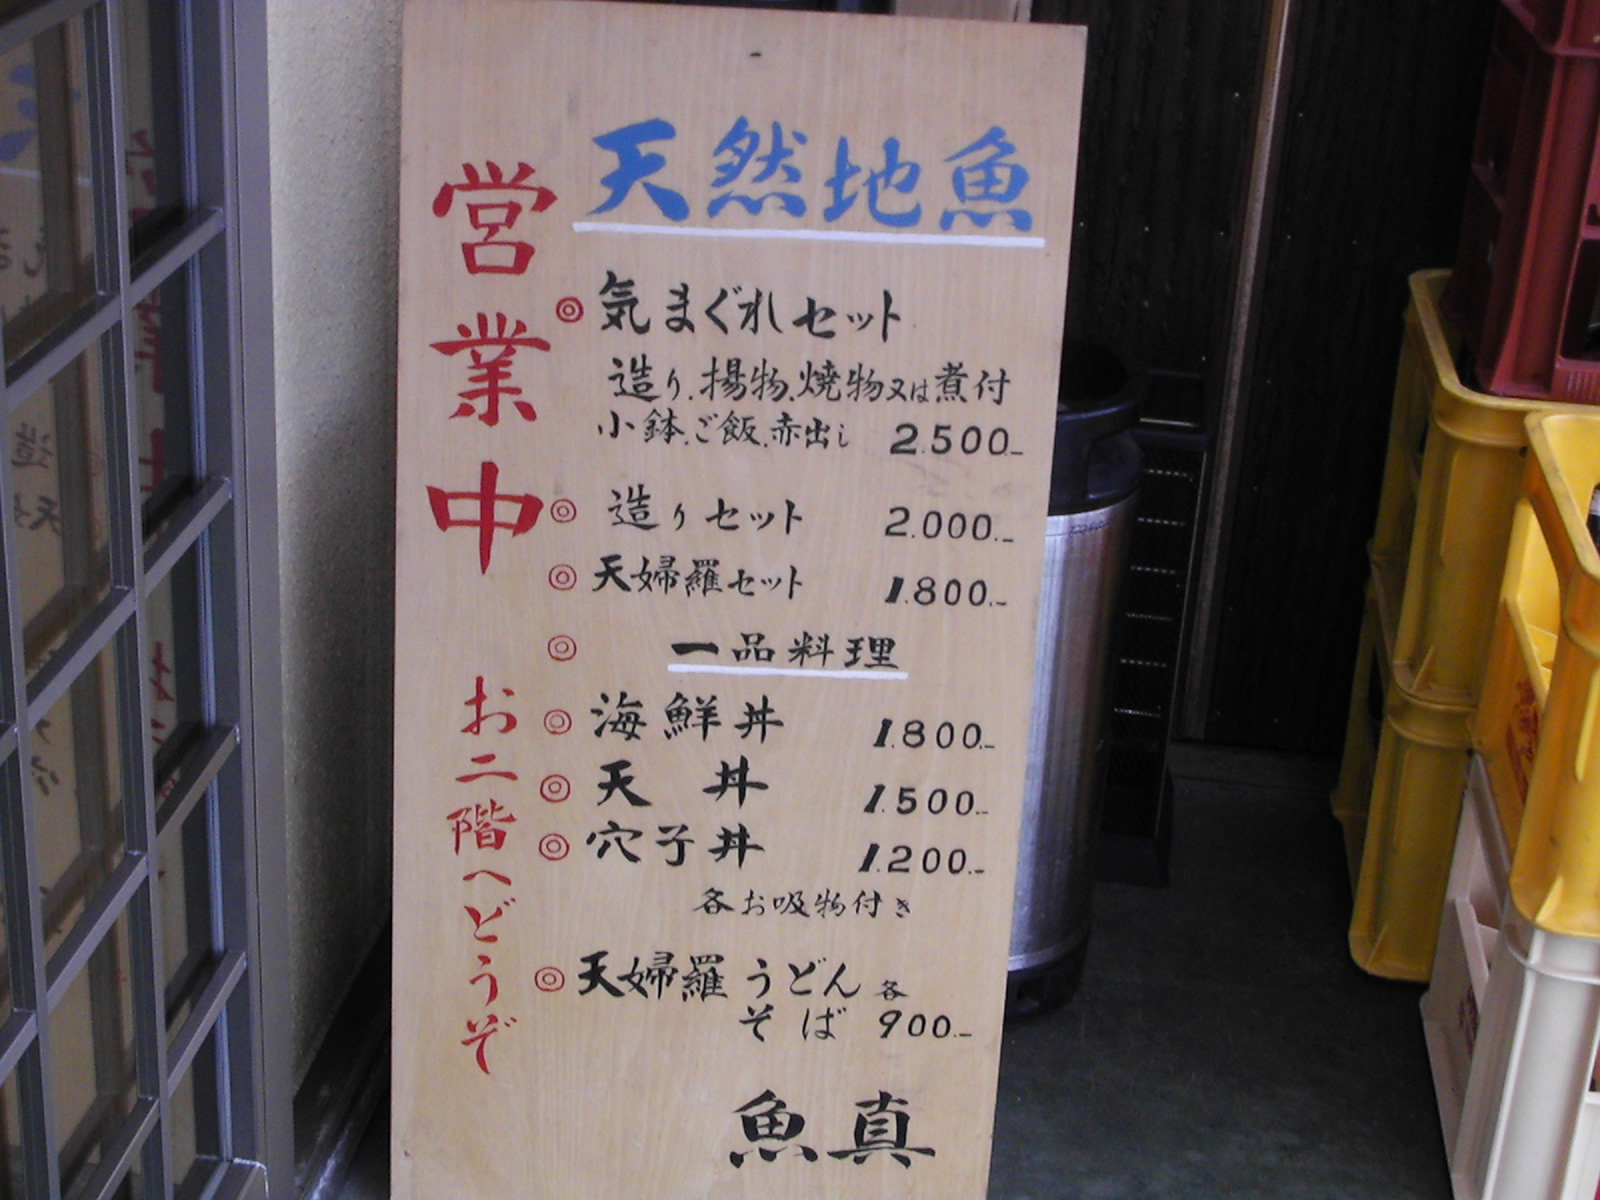 天然地魚
営業中
お二階へどうぞ
◎気まぐれセット
造り.揚物.焼物又は煮付
小鉢.ご飯.赤出し 2.500.-
◎造りセット 2.000.-
◎天婦羅セット 1.800.-
◎一品料理
◎海鮮丼 1.800.-
◎天丼 1.500.-
◎穴子丼 1.200.-
各お吸物付き
◎天婦羅うどん各
そば 900.-
魚真